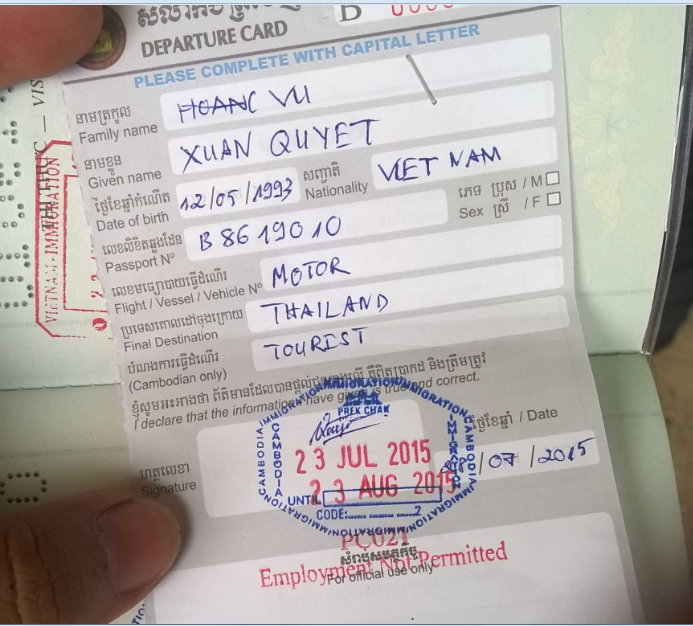 DEPARTURE CARD
B
PLEASE COMPLETE WITH CAPITAL LETTER
នាមត្រកូល
Family name
HOANG VU
នាមខ្លួន
Given name
XUAN QUYET
ថ្ងៃខែឆ្នាំកំណើត
Date of birth
12/05/1993
សញ្ជាតិ
Nationality
VIET NAM
លេខលិខិតឆ្លងដែន
Passport Nº
B 8619010
ភេទ ប្រុស / M
Sex ស្រី / F
លេខមធ្យោបាយធ្វើដំណើរ
Flight / Vessel / Vehicle Nº
MOTOR
ប្រទេសគោលដៅចុងក្រោយ
Final Destination
THAILAND
បំណងការធ្វើដំណើរ
(Cambodian only)
TOURIST
I declare that the information I have given is true and correct.
ហត្ថលេខា
Signature
ថ្ងៃខែឆ្នាំ / Date
/07/2015
CAMBODIA IMMIGRATION
PREK CHAK
23 JUL 2015
UNTIL 23 AUG 2015
CODE: 2
PC021
សំរាប់សមត្ថកិច្ច
For official use only
Employment Not Permitted
VIETNAM - IMMIGRATION